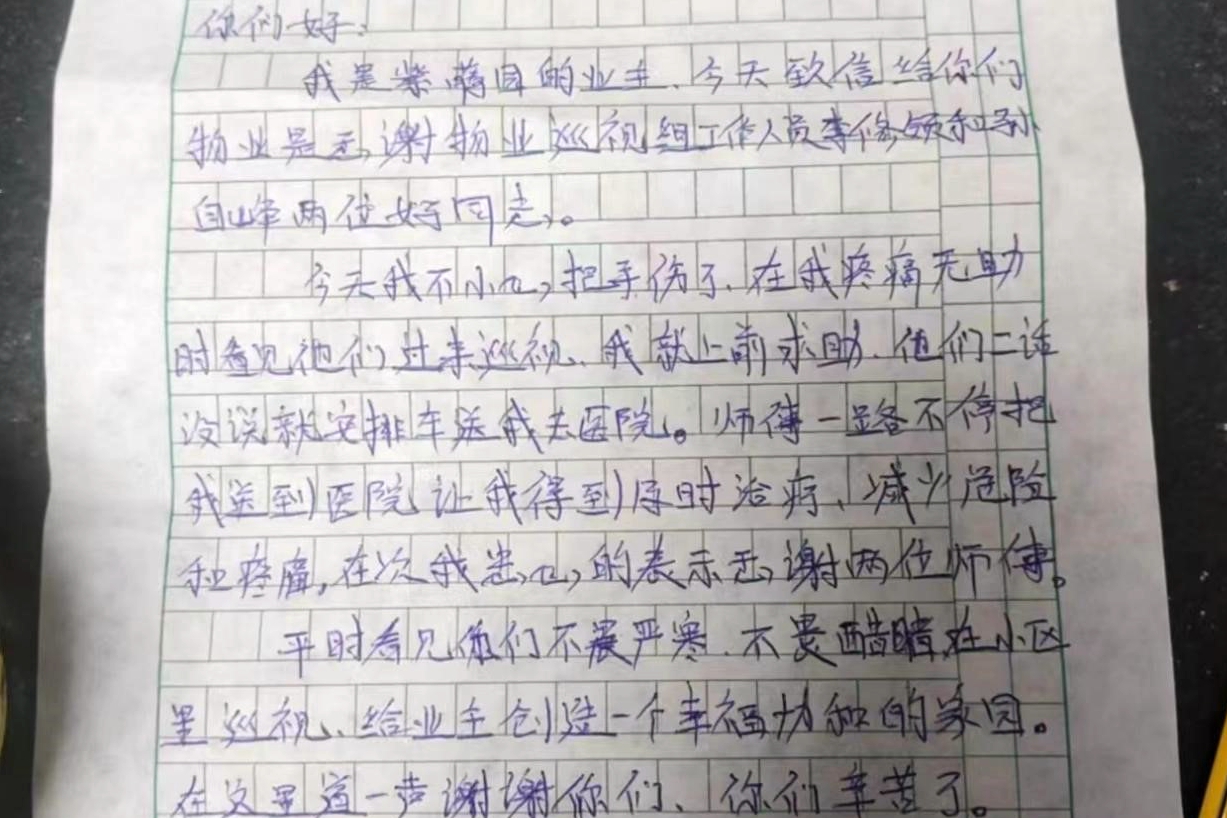 你们好:
我是紫薇园的业主、今天致信给你们
物业是感谢物业巡视组工作人员李修领和孙
自峰两位好同志。
今天我不小心把手伤了、在我疼痛无助
时看见他们过来巡视、我就上前求助、他们二话
没说就安排车送我去医院。师傅一路不停把
我送到医院让我得到及时治疗、减少危险
和疼痛,在次我忠心的表示感谢两位师傅。
平时看见他们不畏严寒、不畏酷暑在小区
里巡视、给业主创建一个幸福功和的家园。
在这里道一声谢谢你们、你们辛苦了。